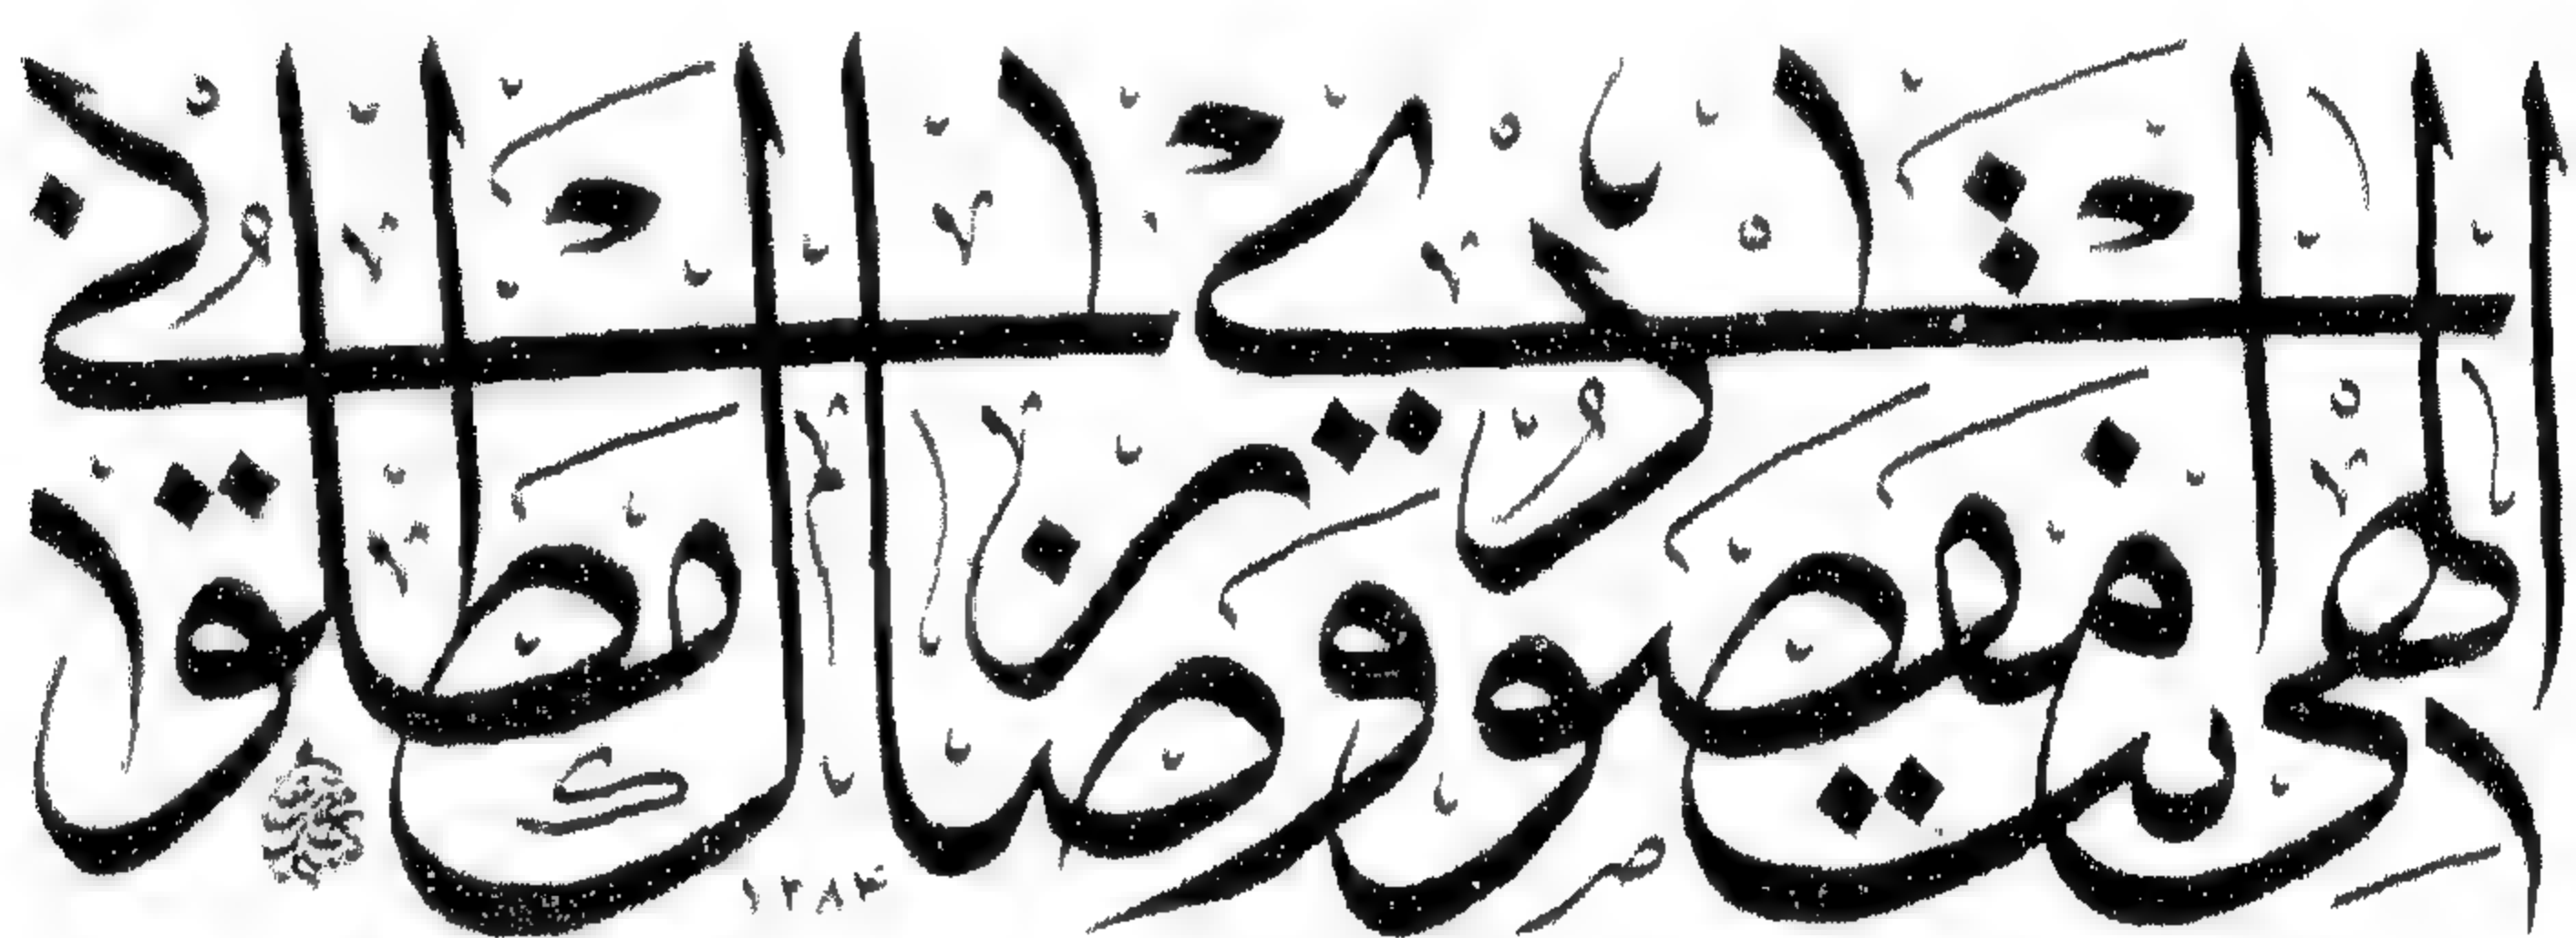 الهى انت مقصودى ورضاك مطلوبى
١٢٨٣